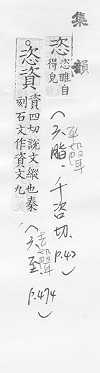 集韻
恣
恣睢自
得皃
(六脂
千咨切.
p.43)
恣資
資四切說文縱也秦
刻石文作資文九
(六至
p.474
)